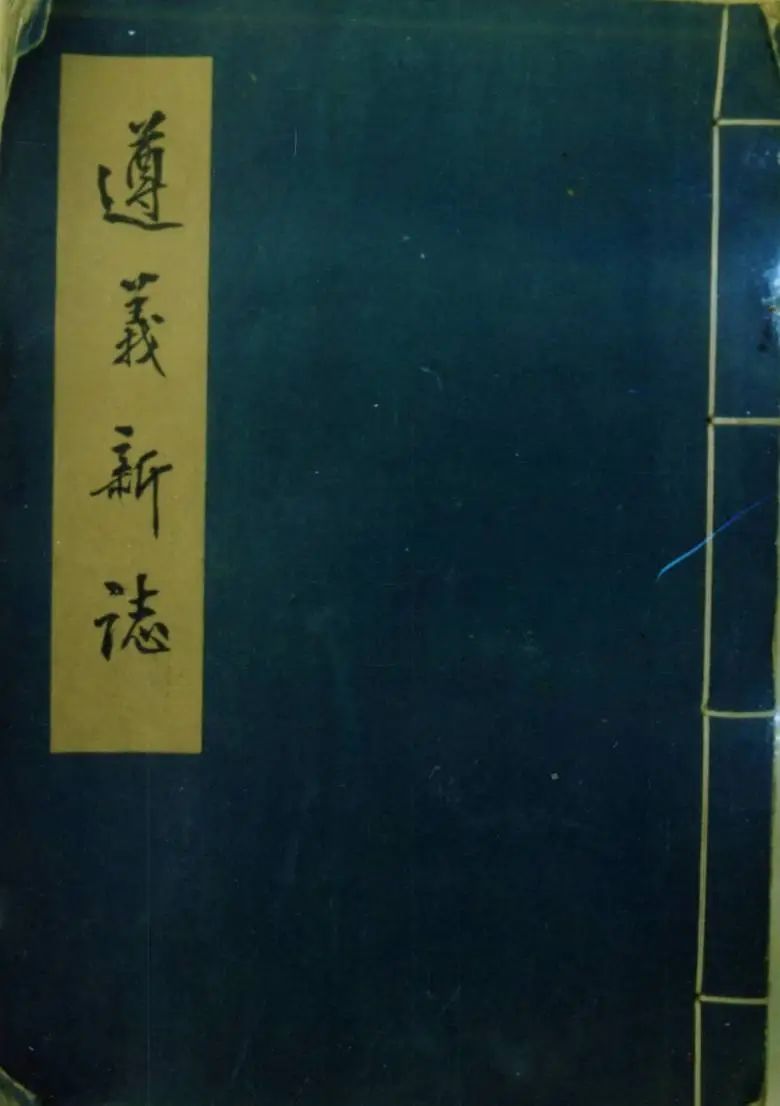 遵義新誌